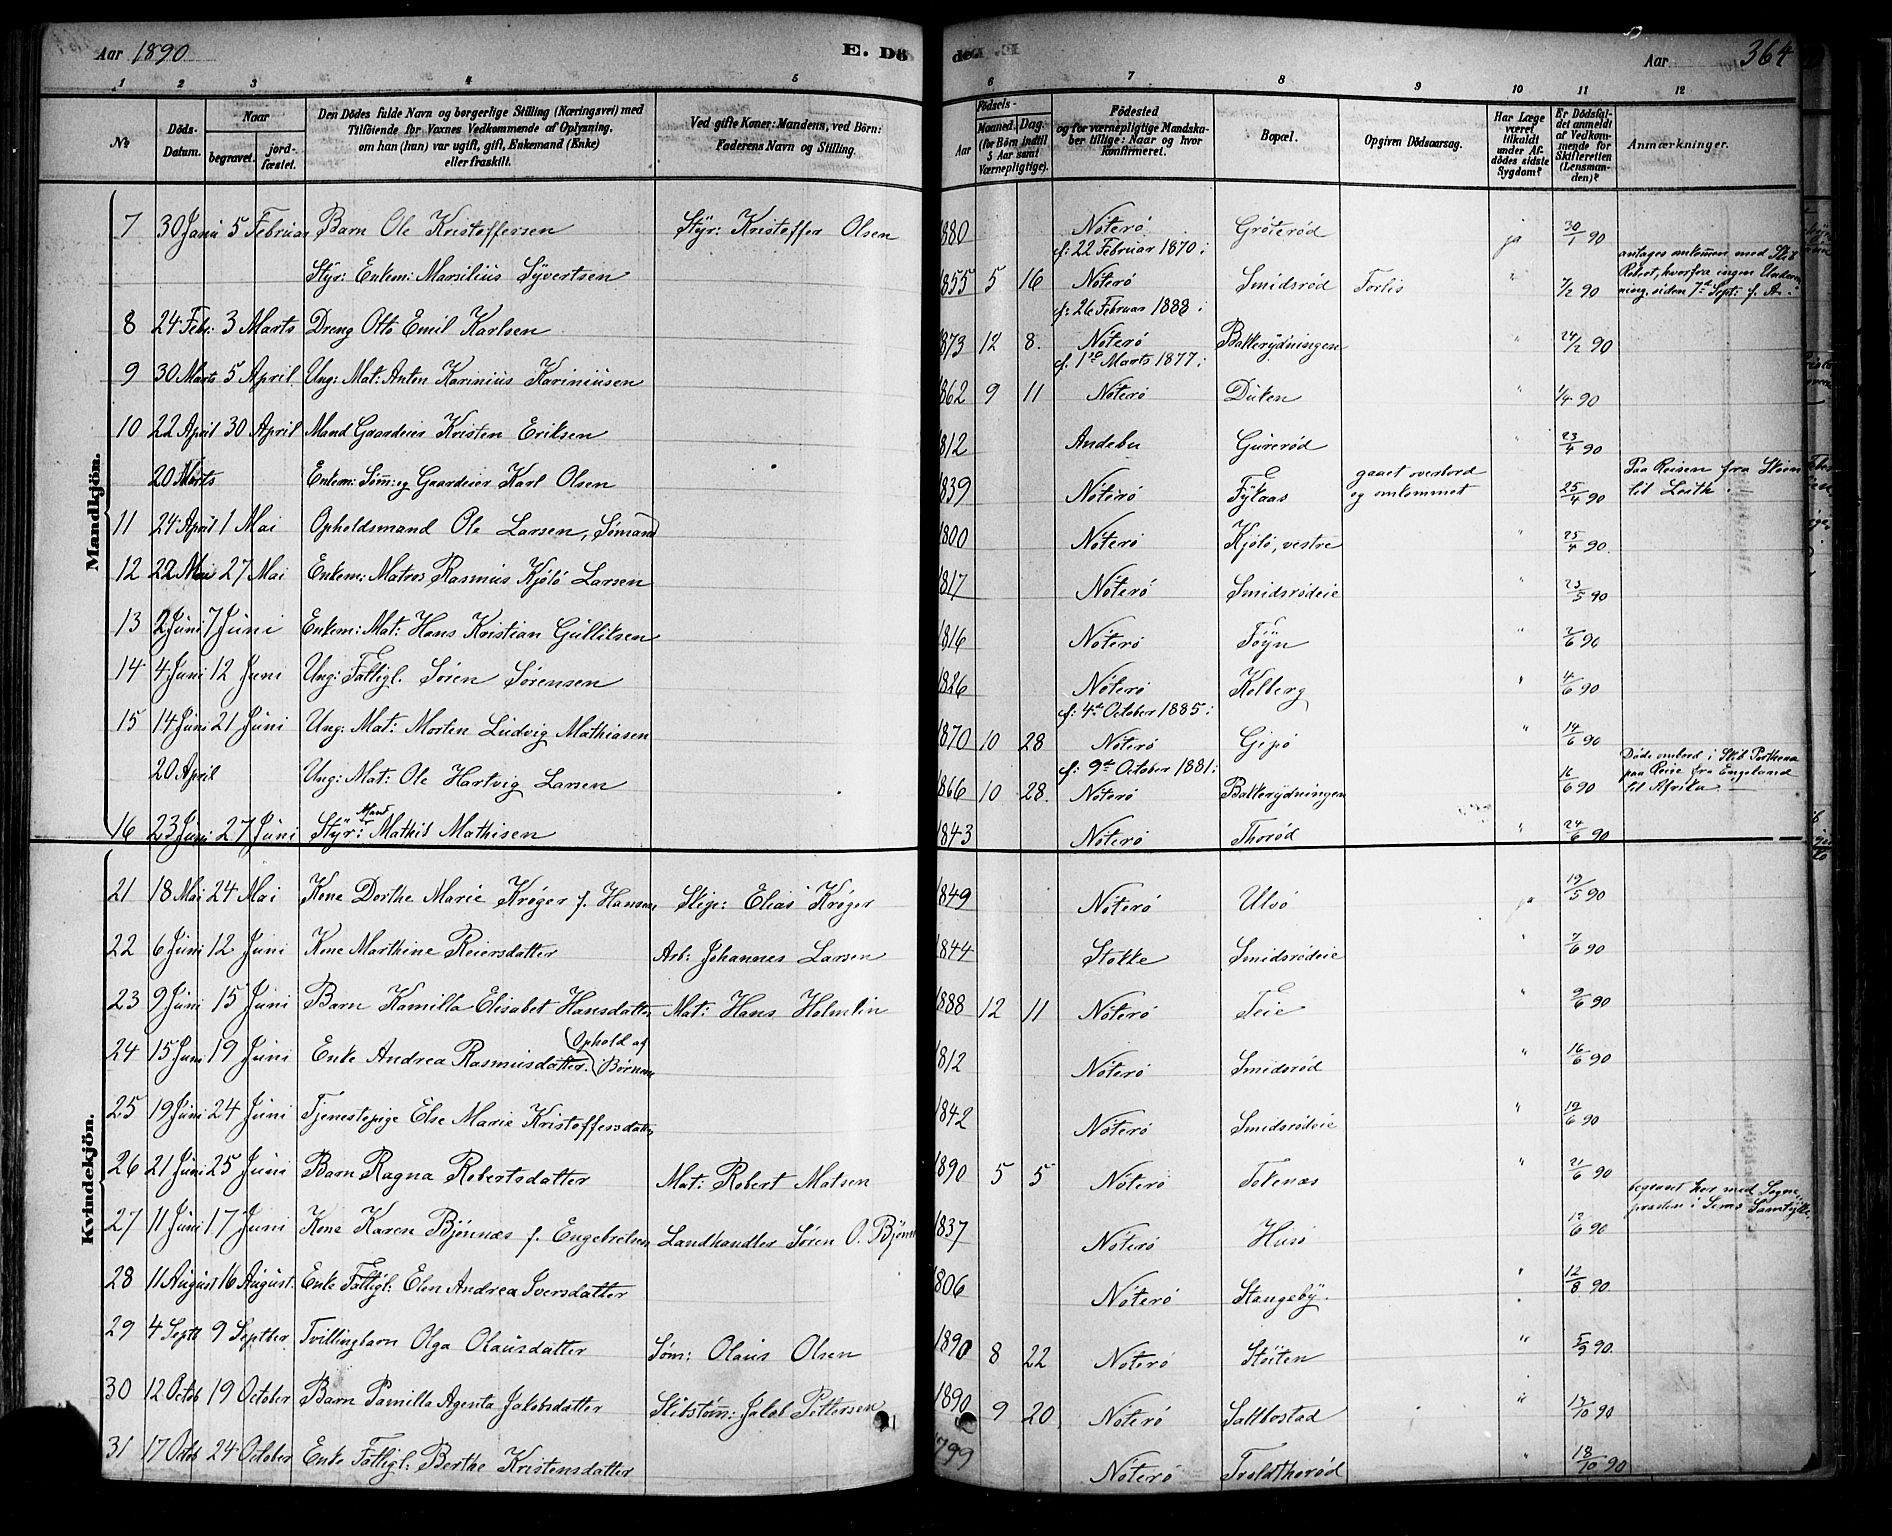 Aar 1890
E. Dö
1 2 3 4 5
№
Döds-Datum.
Naar
begravet.
jordfæstet.
Den Dödes fulde Navn og borgerlige Stilling (Næringsvei) med
Tilföiende for Voxnes Vedkommende af Oplysning,
om han (hun) var ugift, gift, Enkemand (Enke)
eller fraskilt.
Ved gifte Koner: Mandens, ved Börn:
Faderens Navn og Stilling.
Mandkjön.
7 30 Janu 5 Februar Barn Ole Kristoffersen Styr: Kristoffer Olsen
Styr: Enkem: Marsilius Syvertsen
8 24 Febr: 3 Marts Dreng Otto Emil Karlsen
9 30 Marts 5 April Ung: Mat: Anton Karinius Kariniusen
10 22 April 30 April Mand Gaardeier Kristen Eriksen
20 Marts Enkem: Søm: og Gaardeier Karl Olsen
11 24 April 1 Mai Opholdsmand Ole Larsen, Sømand
12 22 Mai 27 Mai Enkem: Matros Rasmus Kjøl&ouml; Larsen
13 2 Juni 7 Juni Enkem: Mat: Hans Kristian Gulliksen
14 4 Juni 12 Juni Ung: Fattigl. Søren Sørensen
15 14 Juni 21 Juni Ung: Mat: Morten Ludvig Mathiasen
20 April Ung: Mat: Ole Hartvig Larsen
16 23 Juni 27 Juni Styr: Mand Mathis Mathisen
Kvindekjön.
21 18 Mai 24 Mai Kone Dorthe Marie Krøger f. Hansen Skipr: Elias Krøger
22 6 Juni 12 Juni Kone Marthine Reiersdatter Arb: Johannes Larsen
23 9 Juni 15 Juni Barn Kamilla Elisabet Hansdatter Mat: Hans Holmlin
24 15 Juni 19 Juni Enke Andrea Rasmusdatter. (Ophold af Børnene
25 19 Juni 24 Juni Tjenestepige Else Marie Kristoffersdatter
26 21 Juni 25 Juni Barn Ragna Robertsdatter Mat: Robert Matsen
27 11 Juni 17 Juni Kone Karen Bjønnæs f. Engebretsen Landhandler Søren O. Bjønn
28 11 August 16 August. Enke Fattigl: Elen Andrea Iversdatter
29 4 Septb 9 Septber Tvillingbarn Olga Olausdatter Søm: Olaus Olsen
30 12 Octob 19 October Barn Pamilla Agenta Jakobsdatter Skibstøm: Jakob Pettersen
31 17 Octob 24 October Enke Fattigl: Berthe Kristensdatter
des
Aar 364
6 7 8 9 10 11 12
Födsels-
Aar
Maaned.
Dag.
(for Börn indtil
5 Aar samt
Værnepligtige).
Födested
og for værnepligtige Mandska-
ber tillige: Naar og hvor
konfirmeret.
Bopæl.
Opgiven Dödsaarsag.
Har Læge
været
tilkaldt
under Af-
dödes sidste
Sygdom?
Er Dödsfal-
det anmeldt
af Vedkom-
mende for
Skifteretten
(Lensman-
den)?
Anmærkninger.
1880 Nøterø Grøterød ja 30/1 90
cf: 22 Februar 1870:
1855 5 16 Nøterø Smidsrød Forlis " 7/2 90
antages omkommen med Skib
Robert, hvorfra ingen Underret-
ning siden 7de Sept: f. A.
cf: 26 Februar 1888:
1873 12 8. Nøterø Bakkerydningen " 24/2 90
cf: 1ste Marts 1877:
1862 9 11 Nøterø Duken " 1/4 90
1812 Andebu Gurerød " 23/4 90
1839 Nøterø Fylaas gaaet overbord og omkommet 25/4 90
Paa Reisen fra Skien
til Leith.
1800 Nøterø Kjølø, vestre " 25/4 90.
1817 Nøterø Smidsrødeie " 23/5 90
1816 Nøterø Føyn " 2/6 90
1826 Nøterø Kolberg " 4/6 90
cf: 4de October 1885:
1870 10 28 Nøterø Gipø 14/6 90
cf: 9de October 1881:
1866 10 28. Nøterø Bakkerydningen 16/6 90
Døde ombord i Skib Parthena
paa Reise fra Engeland
til Afrika
1843 Nøterø Thorød " 24/6 90
1849 Nøterø Ulvø ja 19/5 90
1844 Stokke Smidsrødeie " 7/6 90
1888 12 11 Nøterø Teie " 9/6 90
1812 Nøterø Smidsrød " 16/6 90
1842 Nøterø Smidsrødeie " 19/6 90
1890 5 5 Nøterø Tokenæs " 21/6 90
1837 Nøterø Husø 12/6 90
begravet her med Sogne-
præsten i Sems Samtykke
1806 Nøterø Stangeby. " 12/8 90.
1890 8 22 Nøterø Støiten " 5/9 90.
1890 9 20 Nøterø Saltbostad " 13/10 90
1799 Nøterø Troldthorød " 18/10 90